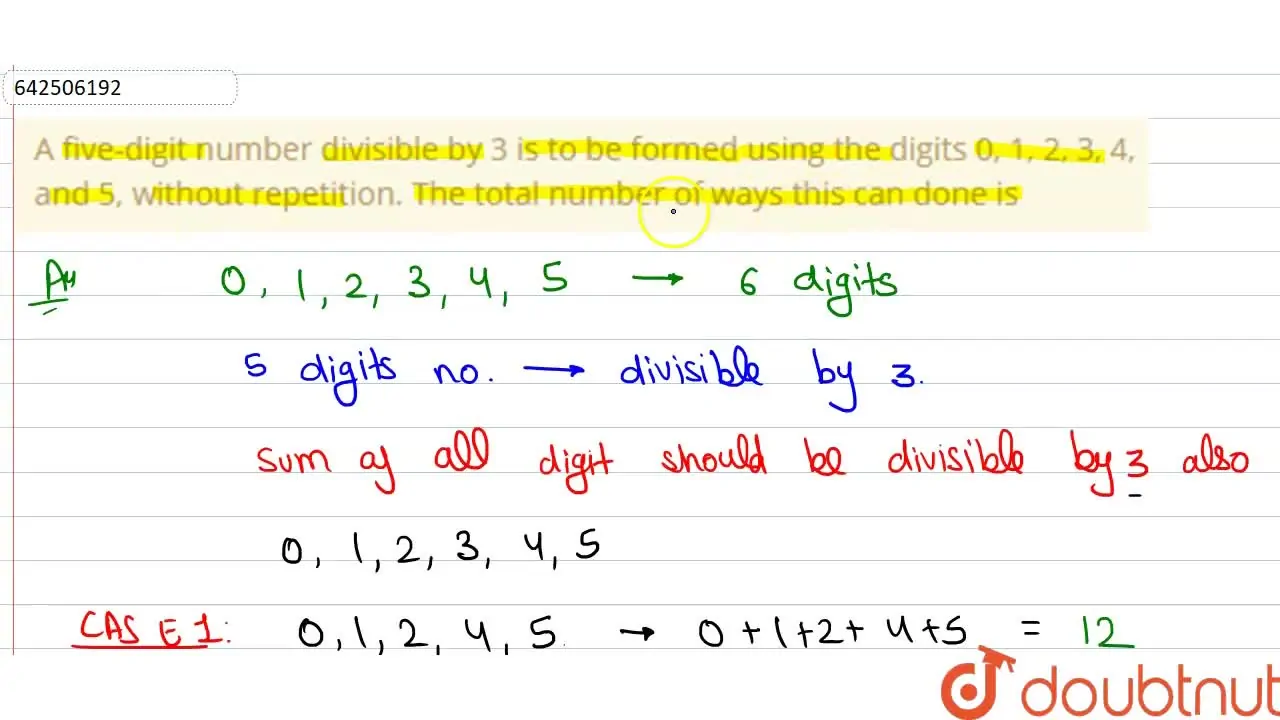 642506192
A five-digit number divisible by 3 is to be formed using the digits 0, 1, 2, 3, 4,
and 5, without repetition. The total number of ways this can done is
0, 1, 2, 3, 4, 5 → 6 digits
5 digits no. → divisible by 3.
sum of all digit should be divisible by 3 also
0, 1, 2, 3, 4, 5
CASE 1: 0, 1, 2, 4, 5. → 0+1+2+4+5 = 12
doubtnut